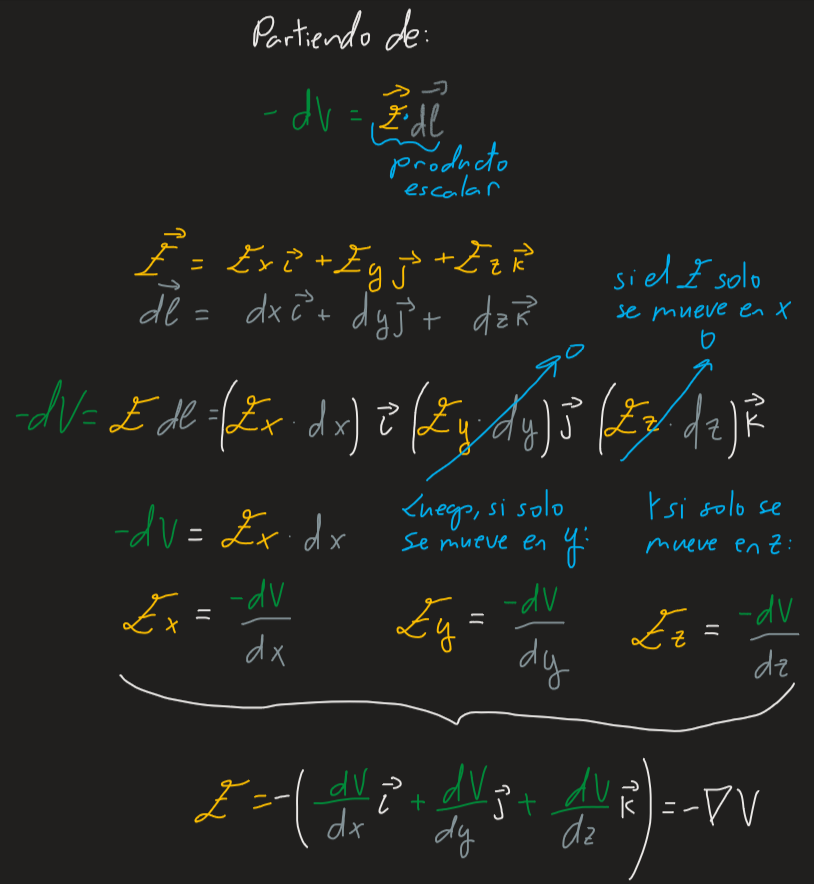 Partiendo de:
-dV = E⃗·dl⃗
producto
escalar
E⃗ = Ex i⃗ + Ey j⃗ + Ez k⃗
dl⃗ = dx i⃗ + dy j⃗ + dz k⃗
si el E solo
se mueve en x
0 0
-dV = E dl = (Ex · dx) i⃗ (Ey · dy) j⃗ (Ez · dz) k⃗
Luego, si solo
se mueve en y:
Y si solo se
mueve en z:
-dV = Ex · dx
Ex = -dV/dx Ey = -dV/dy Ez = -dV/dz
E = -(dV/dx i⃗ + dV/dy j⃗ + dV/dz k⃗) = -∇V